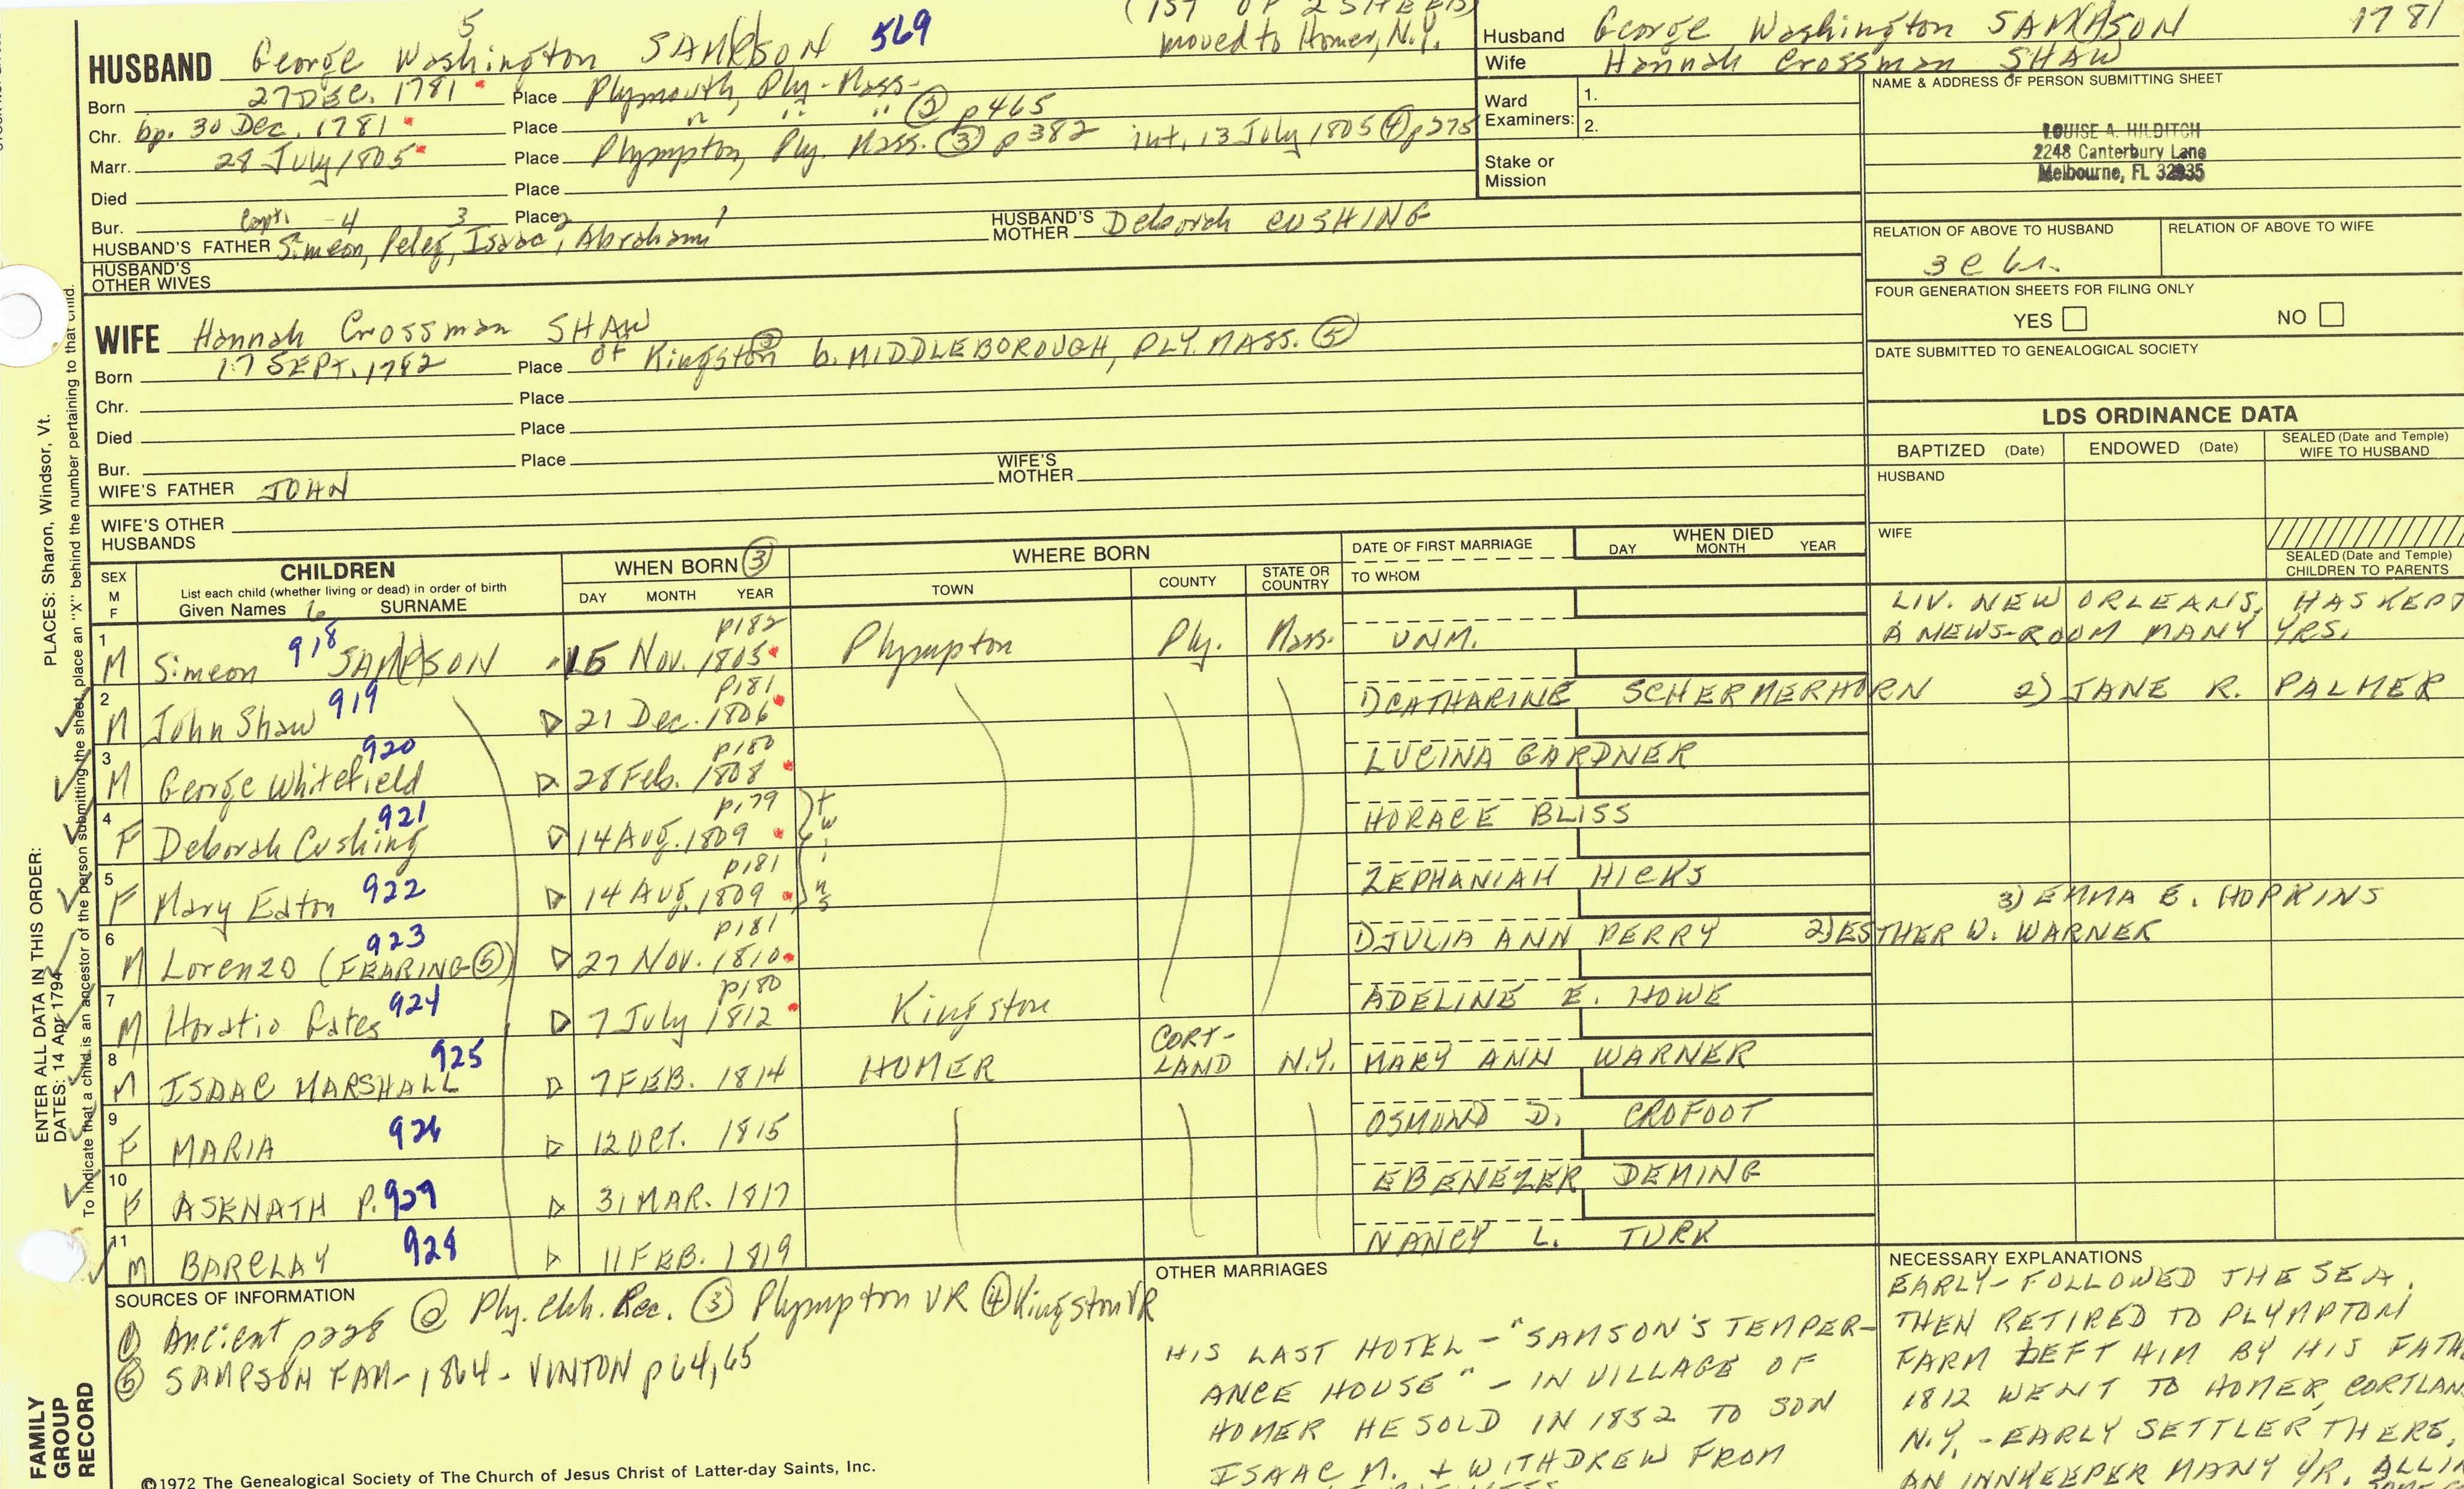 (1ST OF 2 SHEETS)
5
HUSBAND George Washington SAMPSON 569 moved to Homer, N.Y.
Born 27 DEC. 1781 Place Plymouth, Ply- Mass-
Chr. bp. 30 Dec. 1781 Place " " " ② p465
Marr. 28 July 1805 Place Plympton, Ply. Mass. ③ p382 int. 13 July 1805 ④ p275
Died Place
Bur. Place
Capt. 4 3 2 1
HUSBAND'S FATHER Simeon, Peleg, Isaac, Abraham HUSBAND'S MOTHER Deborah CUSHING
HUSBAND'S OTHER WIVES
Husband George Washington SAMPSON 1781
Wife Hannah Crossman SHAW
Ward Examiners: 1.
2.
Stake or Mission
NAME & ADDRESS OF PERSON SUBMITTING SHEET
LOUISE A. HILDITCH
2248 Canterbury Lane
Melbourne, FL 32935
RELATION OF ABOVE TO HUSBAND RELATION OF ABOVE TO WIFE
3 c 6r.
FOUR GENERATION SHEETS FOR FILING ONLY
YES NO
DATE SUBMITTED TO GENEALOGICAL SOCIETY
WIFE Hannah Crossman SHAW
Born 17 SEPT. 1782 Place of Kingston ③ b. MIDDLEBOROUGH, PLY. MASS. ⑤
Chr. Place
Died Place
Bur. Place
WIFE'S FATHER JOHN WIFE'S MOTHER
WIFE'S OTHER HUSBANDS
LDS ORDINANCE DATA
BAPTIZED (Date) ENDOWED (Date) SEALED (Date and Temple) WIFE TO HUSBAND
HUSBAND
WIFE
SEALED (Date and Temple) CHILDREN TO PARENTS
SEX M F CHILDREN List each child (whether living or dead) in order of birth Given Names 6 SURNAME WHEN BORN ③ DAY MONTH YEAR WHERE BORN TOWN COUNTY STATE OR COUNTRY DATE OF FIRST MARRIAGE TO WHOM WHEN DIED DAY MONTH YEAR
1 M Simeon 918 SAMPSON 15 Nov. 1805 p182 Plympton Ply. Mass. UNM. LIV. NEW ORLEANS, HAS KEPT
A NEWS-ROOM MANY YRS.
2 M John Shaw 919 21 Dec. 1806 p181 1) CATHARINE SCHERMERHORN 2) JANE R. PALMER
3 M George Whitefield 920 28 Feb. 1808 p180 LUCINA GARDNER
4 F Deborah Cushing 921 14 Aug. 1809 p179 twins HORACE BLISS
5 F Mary Eaton 922 14 Aug. 1809 p181 ZEPHANIAH HICKS
6 M Lorenzo (FEARING-⑤) 923 27 Nov. 1810 p181 1) JULIA ANN PERRY 2) ESTHER W. WARNER 3) EMMA E. HOPKINS
7 M Horatio Gates 924 7 July 1812 p180 Kingston ADELINE E. HOWE
8 M ISAAC MARSHALL 925 7 FEB. 1814 HOMER CORT-LAND N.Y. MARY ANN WARNER
9 F MARIA 926 12 OCT. 1815 OSMUND D. CROFOOT
10 F ASENATH P. 927 31 MAR. 1817 EBENEZER DEMING
11 M BARCLAY 928 11 FEB. 1819 NANCY L. TURK
SOURCES OF INFORMATION
① Ancient p228 ② Ply. chh. Rec. ③ Plympton VR ④ Kingston VR
⑤ SAMPSON FAM- 1864 - VINTON p64,65
OTHER MARRIAGES
HIS LAST HOTEL - "SAMSON'S TEMPER-
ANCE HOUSE" - IN VILLAGE OF
HOMER HE SOLD IN 1852 TO SON
ISAAC M. + WITHDREW FROM
NECESSARY EXPLANATIONS
EARLY- FOLLOWED THE SEA.
THEN RETIRED TO PLYMPTON
FARM LEFT HIM BY HIS FATH
1812 WENT TO HOMER, CORTLAN
N.Y. - EARLY SETTLER THERE,
AN INNKEEPER MANY YR.
©1972 The Genealogical Society of The Church of Jesus Christ of Latter-day Saints, Inc.
FAMILY GROUP RECORD
ENTER ALL DATA IN THIS ORDER:
DATES: 14 Apr 1794
PLACES: Sharon, Windsor, Vt.
To indicate that a child is an ancestor of the person submitting the sheet, place an "X" behind the number pertaining to that child.